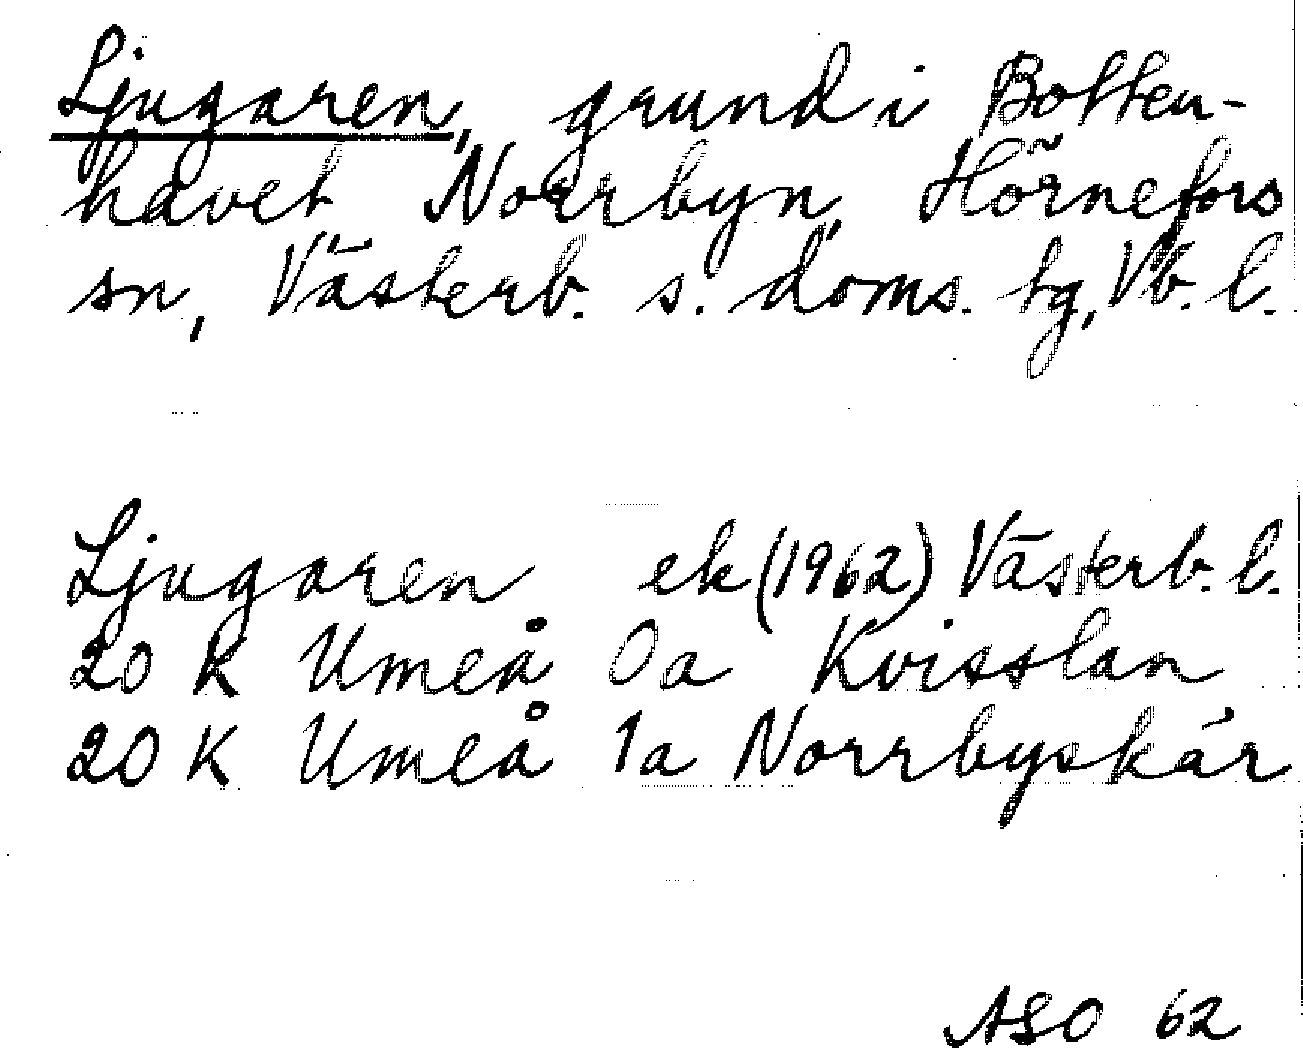 Ljugaren, grund i Botten-
havet Norrbyn, Hörnefors
sn, Västerb. s. doms. tg, Vb. l.
Ljugaren ek (1962) Västerb. l.
20 K Umeå 0a Kvisslan
20 K Umeå 1a Norrbyskär
ASO 62